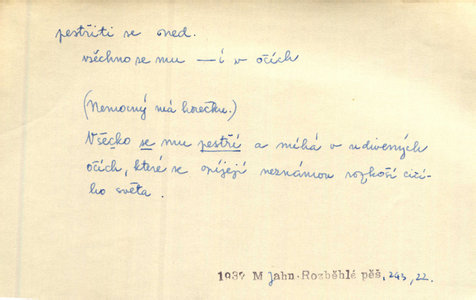 pestřiti se ned.
všechno se mu —í v očích
(Nemocný má horečku.)
Všecko se mu pestří a míhá v udivených
očích, které se opíjejí neznámou rozkoší cizí-
ho světa.
1937 M Jahn-Rozběhlé pěš, 243, 22.